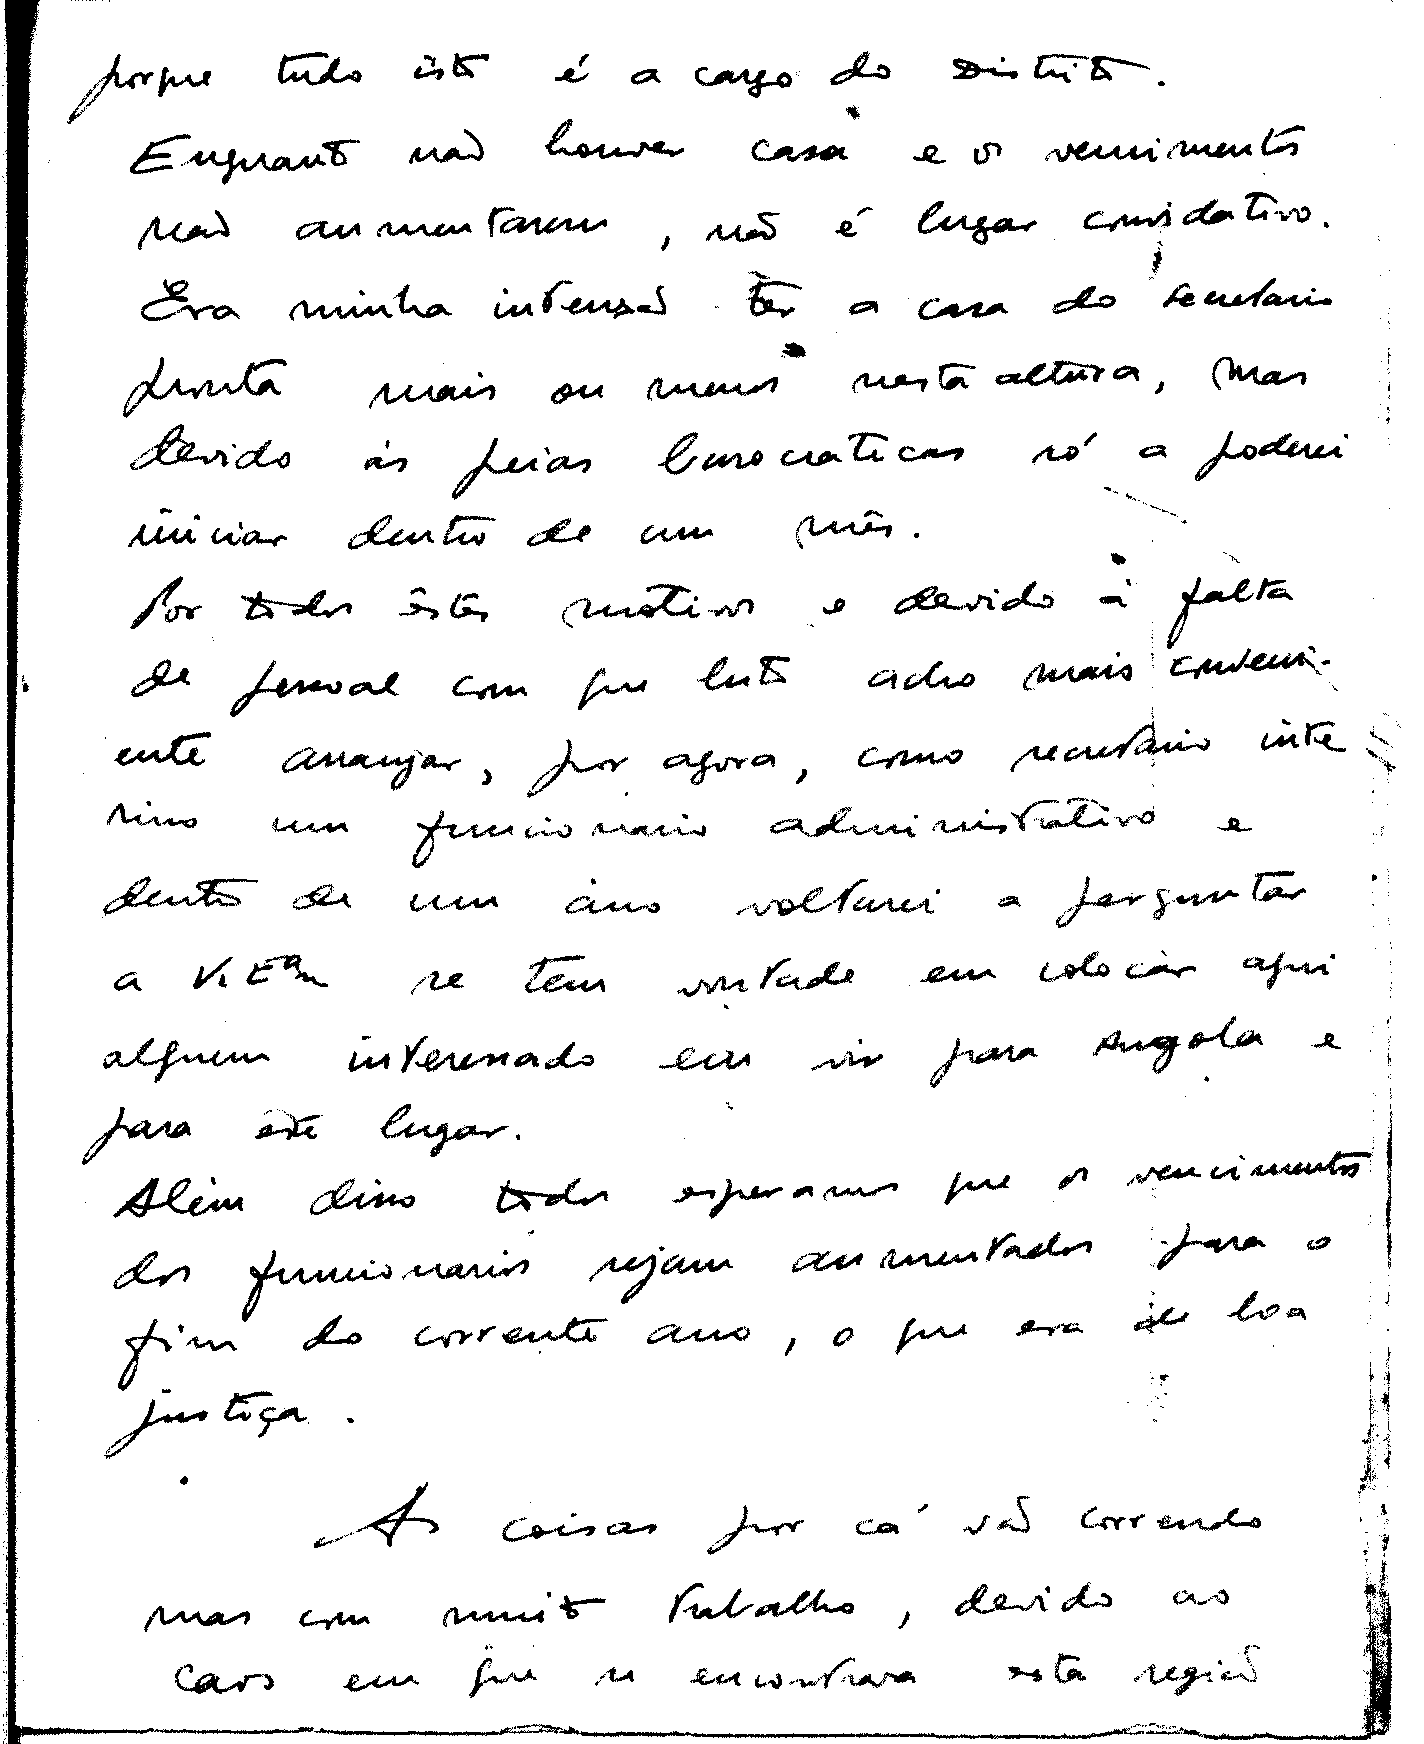 porque tudo isto é a cargo do Distrito.
Enquanto não houver casa e os vencimentos
não aumentarem, não é lugar convidativo.
Era minha intensão ter a casa do secretario
pronta mais ou menos nesta altura, mas
devido ás peias burocraticas só a poderei
iniciar dentro de um mês.
Por todos êstes motivos e devido á falta
de pessoal com que luto acho mais conveni-
ente arranjar, por agora, como secretario inte
rino um funcionario administrativo e
dentro de um ano voltarei a perguntar
a V. Exª se tem vontade em colocar aqui
alguem interessado em vir para Angola e
para este lugar.
Além disso todos esperamos que os vencimentos
dos funcionarios sejam aumentados para o
fim do corrente ano, o que era de boa
justiça.
As coisas por cá vão correndo
mas com muito trabalho, devido ao
caos em que se encontrava esta região